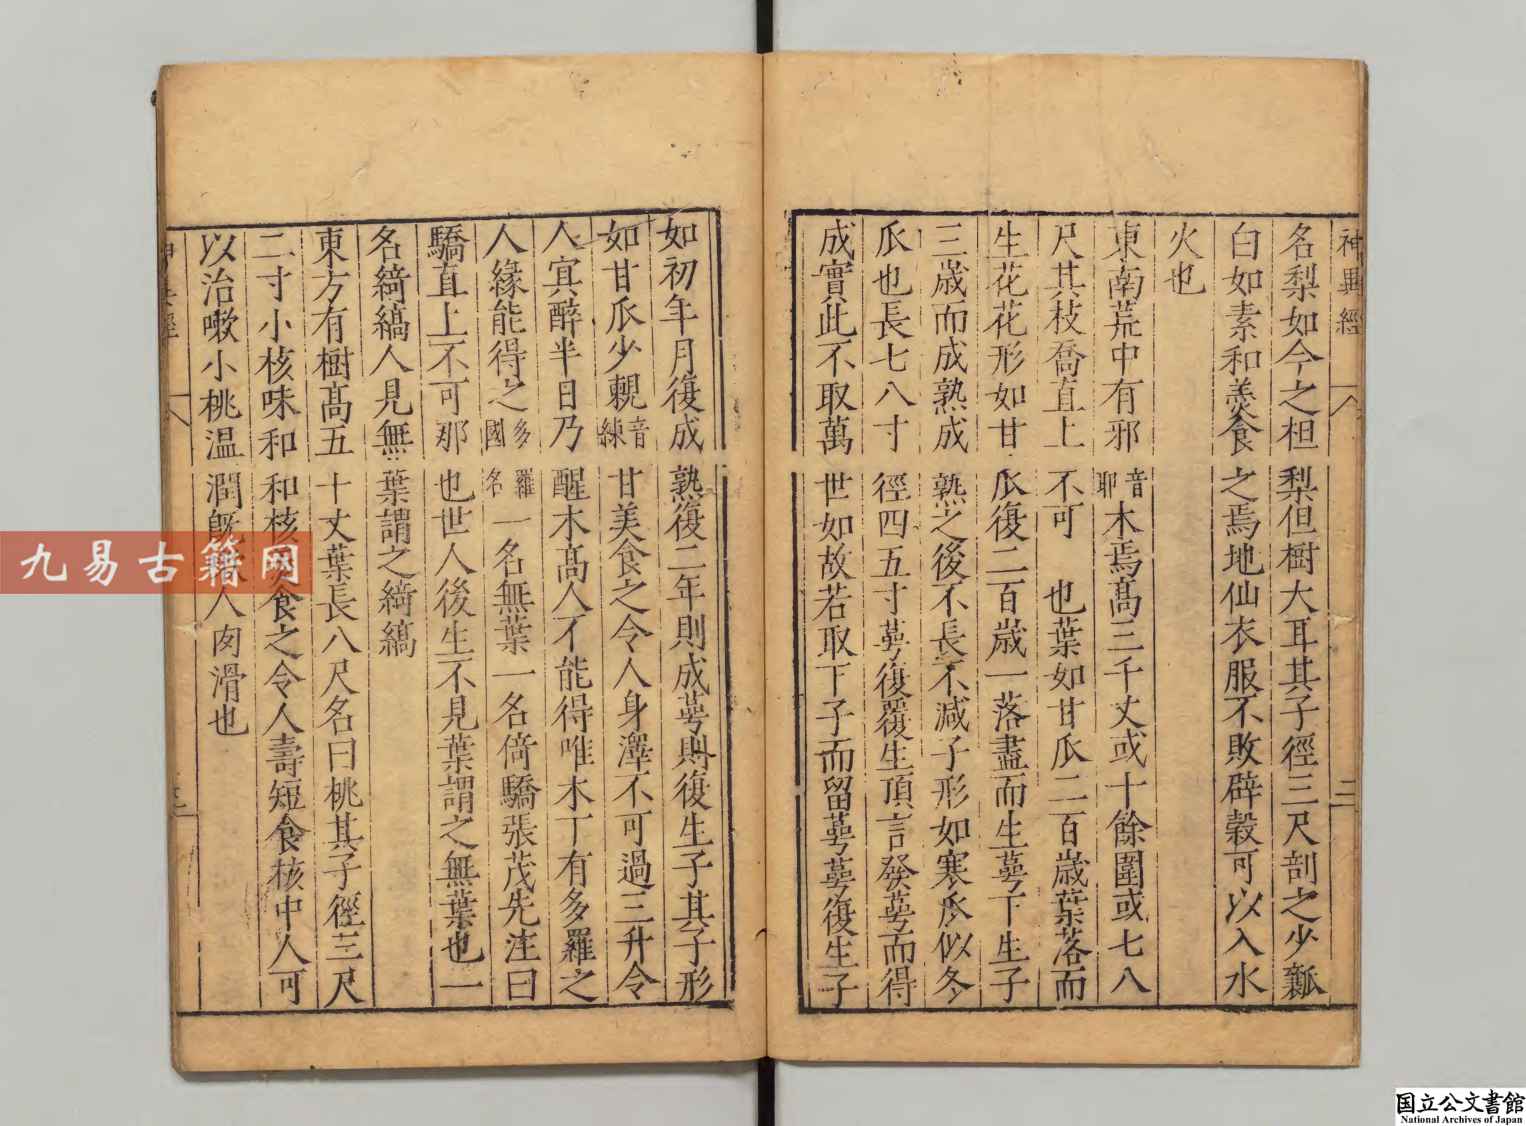 神異經 八 三
名梨如今之柤梨但樹大耳其子徑三尺剖之少瓤
白如素和羹食之焉地仙衣服不敗辟穀可以入水
火也
東南荒中有邪音耶木焉高三千丈或十餘圍或七八
尺其枝喬直上不可 也葉如甘瓜二百歲葉落而
生花花形如甘瓜復二百歲一落盡而生萼下生子
三歲而成熟成熟之後不長不减子形如寒瓜似冬
瓜也長七八寸徑四五寸萼復覆生頂言發萼而得
成實此不取萬世如故若取下子而留萼萼復生子
如初年月復成熟復二年則成萼則復生子其子形
如甘瓜少親音練甘美食之令人身澤不可過三升令
人冥醉半日乃醒木高人不能得唯木丁有多羅之
人緣能得之多羅國名一名無葉一名倚驕張茂先注曰
驕直上不可那也世人後生不見葉謂之無葉也一
名綺縞人見無葉謂之綺縞
東方有樹高五十丈葉長八尺名曰桃其子徑三尺
二寸小核味和和核食之令人壽短食核中人可
以治嗽小桃温潤既人肉滑也
九易古籍网
国立公文書館
National Archives of Japan